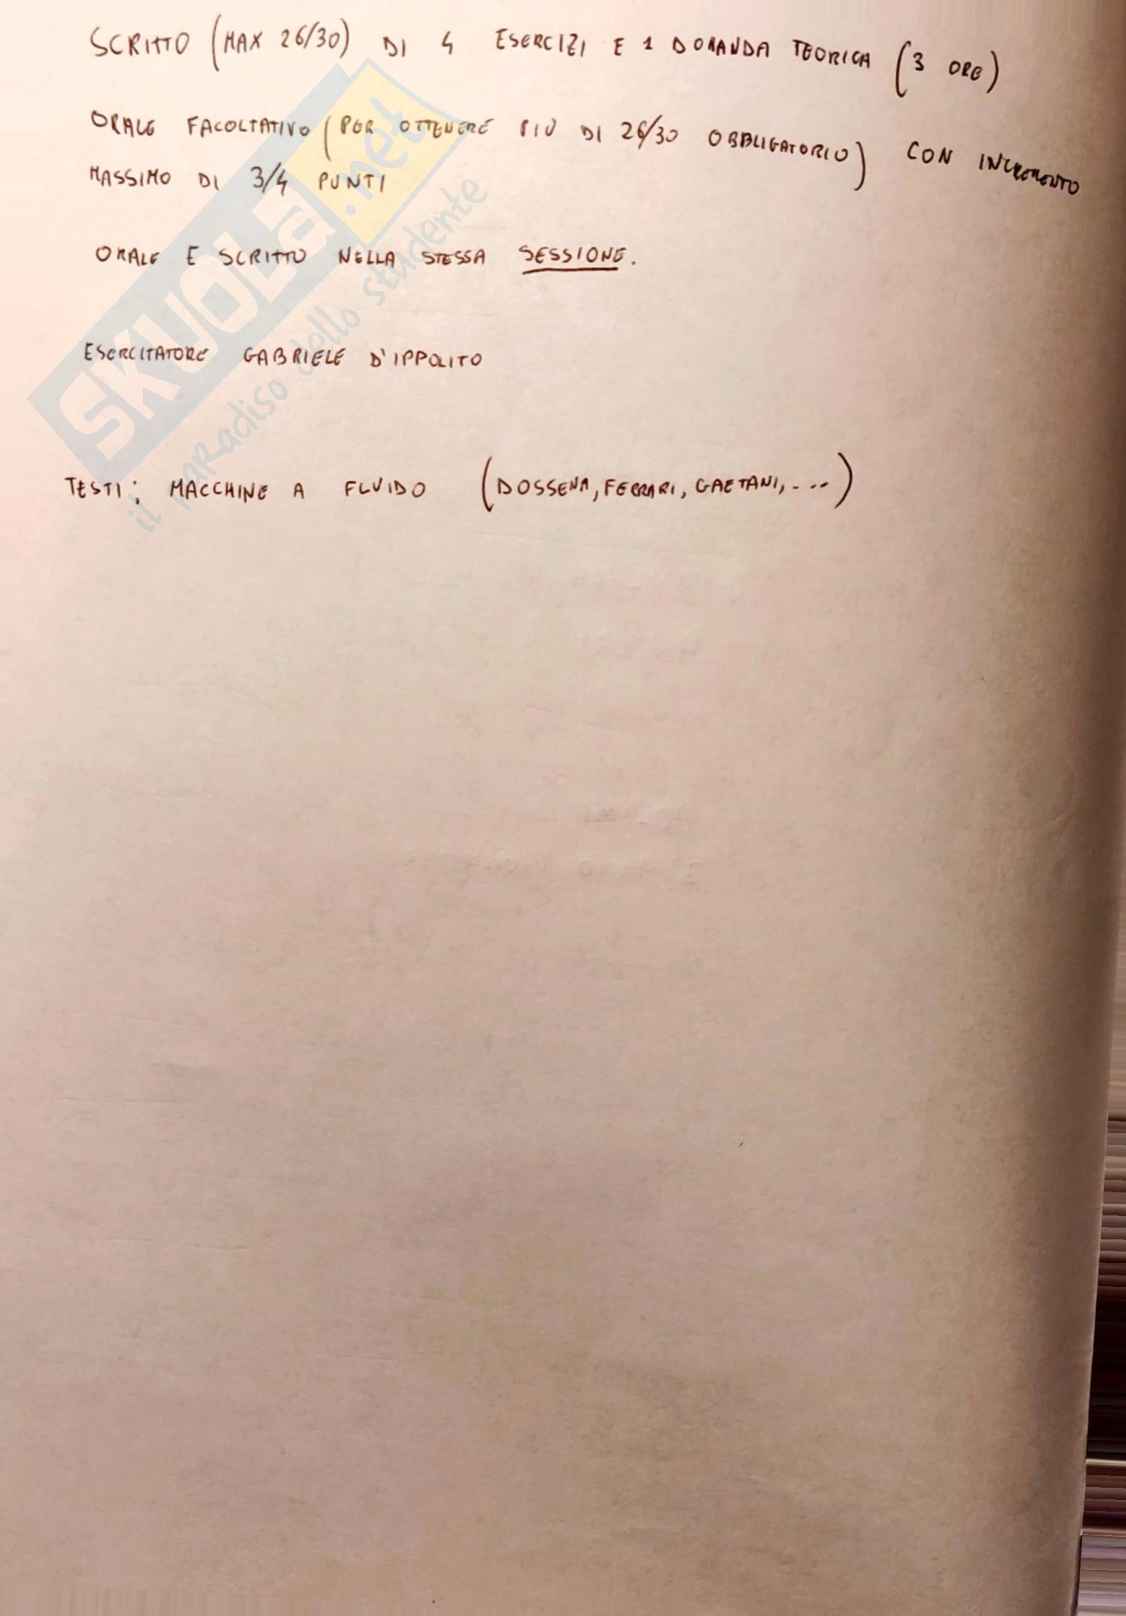 SCRITTO (MAX 26/30) DI 4 ESERCIZI E 1 DOMANDA TEORICA (3 ORE)
ORALE FACOLTATIVO (PER OTTENERE PIÙ DI 26/30 OBBLIGATORIO) CON INCREMENTO
MASSIMO DI 3/4 PUNTI
ORALE E SCRITTO NELLA STESSA SESSIONE.
ESERCITATORE GABRIELE D'IPPOLITO
TESTI: MACCHINE A FLUIDO (DOSSENA, FERRARI, GAETANI, ...)
SKUOLA.net
il paradiso dello studente